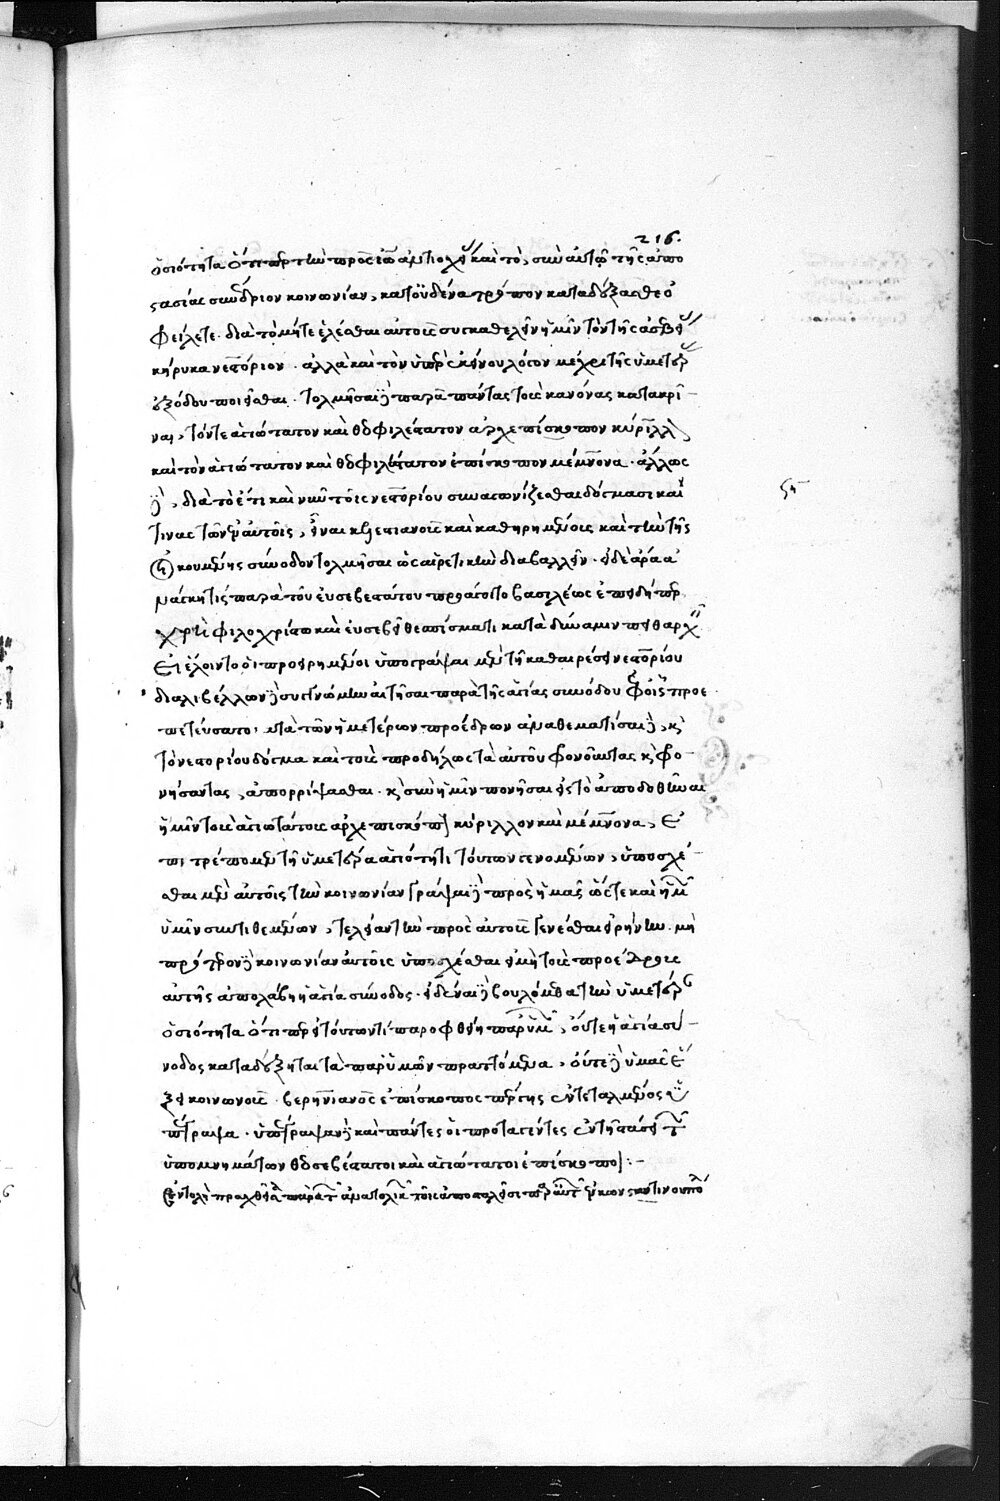 216.
ὁσιότητα ὅτιπερ τὴν πρὸς ἰω ἀντιοχεί καὶ τὸ, σὺν αὐτῷ τῆς ἀπο
στασίας συνέδριον κοινωνίαν, κατ' οὐδένα τρόπον καταδέξασθε ὀ
φείλετε. διὰ τὸ μήτε ἑλέσθαι αὐτοὺς συγκαθελεῖν ἡμῖν τὸν τῆς ἀσεβεί
κήρυκα νεστόριον. ἀλλὰ καὶ τὸν ὑπὲρ ἐκείνου λόγον μέχρι τῆς ὑμετέρ
ἐξόδου ποιεῖσθαι. τολμῆσαι δὲ παρὰ πάντας τοὺς κανόνας κατακρῖ
ναι, τόν τε ἁγιώτατον καὶ θεοφιλέστατον ἀρχιεπίσκοπον κύριλλ
καὶ τὸν ἁγιώτατον καὶ θεοφιλέστατον ἐπίσκοπον μέμνονα. ἄλλως
δὲ, διὰ τὸ ἔτι καὶ νῦν τοῖς νεστορίου συναγωνίζεσθαι δόγμασι καί
τινας τῶν ἐν αὐτοῖς, εἶναι κελεστιανοὺς καὶ καθῃρημένους καὶ τὴν τῆς
οἰκουμένης σύνοδον τολμῆσαι ὡς αἱρετικὴν διαβαλλεῖν. εἰ δὲ ἄρα ἀ
νάγκη τις παρὰ τοῦ εὐσεβεστάτου προσάγοιτο βασιλέως ἐπειδήπερ
χρὴ φιλοχρίστῳ καὶ εὐσεβεῖ θεσπίσματι κατὰ δύναμιν πειθαρχ
εἰ ἕλοιντο οἱ προειρημένοι ὑπογράψαι μὲν τῇ καθαιρέσει νεστορίου
διαλιβέλλων δὲ συγγνώμην αἰτῆσαι παρὰ τῆς ἁγίας συνόδου ἐφ' οἷς προε
πετεύσατο, μετὰ τῶν ἡμετέρων προέδρων ἀναθεματίσαι δὲ, κ
τὸ νεστορίου δόγμα καὶ τοὺς προδήλως τὰ αὐτοῦ φρονοῦντας κ φρο
νήσαντας, ἀπορρίψασθαι. κ σὺν ἡμῖν πονῆσαι εἰς τὸ ἀποδοθῆναι
ἡμῖν τοὺς ἁγιωτάτους ἀρχιεπισκόπ κύριλλον καὶ μέμνονα, ἐ
πιτρέπομεν τῇ ὑμετέρα ἁγιότητι τούτων γενομένων, ὑποσχέ
σθαι μὲν αὐτοῖς τὴν κοινωνίαν γράψαι δὲ πρὸς ἡμᾶς ὥστε καὶ ἡμ
ὑμῖν συντιθεμένων, τελείαν τὴν πρὸς αὐτοὺς γενέσθαι εἰρήνην. μὴ
πρότερον δὲ κοινωνίαν αὐτοῖς ὑποσχέσθαι εἰ μὴ τοὺς προέδρους
αὐτῆς ἀπολάβῃ ἡ ἁγία σύνοδος. εἰδέναι δὲ βουλόμεθα τὴν ὑμετέρ
ὁσιότητα ὅτιπερ εἰ τούτων τί παροφθείη παρ' ὑμ, οὔτε ἡ ἁγία σύ
νοδος καταδέξηται τὰ παρ' ὑμῶν πραττόμενα, οὔτε δὲ ὑμᾶς ἕ
ξει κοινωνούς. βερηνιανὸς ἐπίσκοπος πέργης ἐντεταλμένος ὑ
πέγραψα. ὑπέγραψαν δὲ καὶ πάντες οἱ προταγέντες ἐν τῇ τάξει τ
ὑπομνημάτων θεοσεβέστατοι καὶ ἁγιώτατοι ἐπίσκοποι:–
ἐντολὴ πραχθεῖσα παρὰ τ ἀνατολικ τοῖς ἀποσταλεῖσι παρ' αὐτ ἐν κωνσταντινουπό